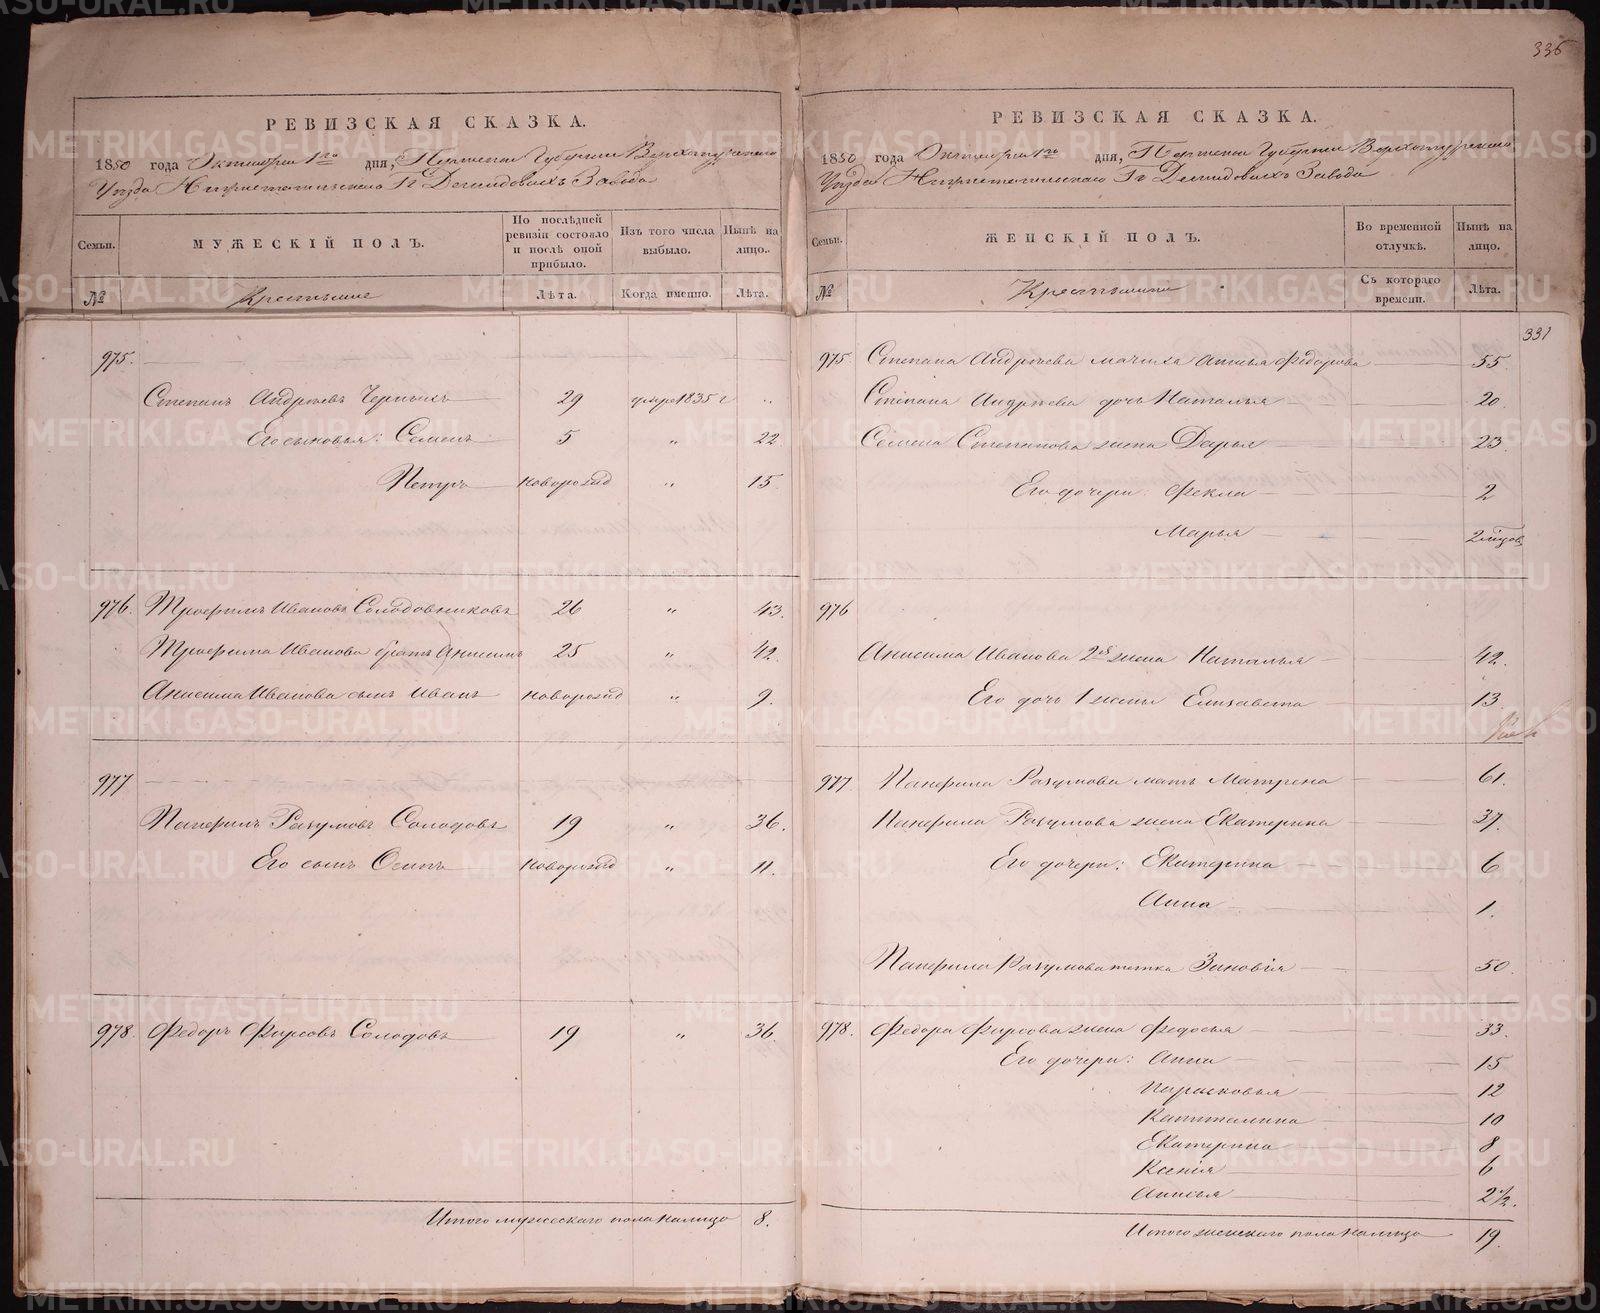 336
РЕВИЗСКАЯ СКАЗКА.
1850 года Октября 1го дня, Пермской Губернии Верхотурского
Уѣзда Нижнетагильского Гг Демидовыхъ Завода
Семьи.
МУЖЕСКІЙ ПОЛЪ.
По послѣдней ревизіи состояло и послѣ оной прибыло.
Изъ того числа выбыло.
Нынѣ на лицо.
№
Крестьяне
Лѣта.
Когда именно.
Лѣта.
975.
Степанъ Андреевъ Черныхъ 29 умре 1835 г "
Его сыновья: Семенъ 5 " 22
Петръ новорожд " 15
976. Трофимъ Ивановъ Солодовниковъ 26 " 43.
Трофима Иванова братъ Анисимъ 25 " 42.
Анисима Иванова сынъ Иванъ новорожд " 9.
977
Панфилъ Разумовъ Солодовъ 19 " 36.
Его сынъ Осипъ новорожд " 11.
978. Федоръ Фирсовъ Солодовъ 19 " 36
Итого мужескаго пола налицо 8.
РЕВИЗСКАЯ СКАЗКА.
1850 года Октября 1го дня, Пермской Губернии Верхотурского
Уѣзда Нижнетагильского Гг Демидовыхъ Завода
Семьи.
ЖЕНСКІЙ ПОЛЪ.
Во временной отлучкѣ.
Нынѣ на лицо.
№
Крестьянки
Съ котораго времени.
Лѣта.
331
975 Степана Андреева мачиха Анисья Федорова 55
Степана Андреева дочь Наталья 20
Семена Степанова жена Дарья 23
Его дочери: Фекла 2
Марья 2 мѣсцов
976
Анисима Иванова 2я жена Наталья 42.
Его дочь 1 жены Елизавета 13
977 Панфила Разумова мать Матрена 61.
Панфила Разумова жена Екатерина 37.
Его дочери: Екатерина 6
Анна 1.
Панфила Разумова тетка Зиновія 50
978. Федора Фирсова жена Федосья 33.
Его дочери: Анна 15
Парасковья 12
Капиталина 10
Екатерина 8
Ксенія 6
Анисья 2 1/2.
Итого женского пола налицо 19
METRIKI.GASO-URAL.RU